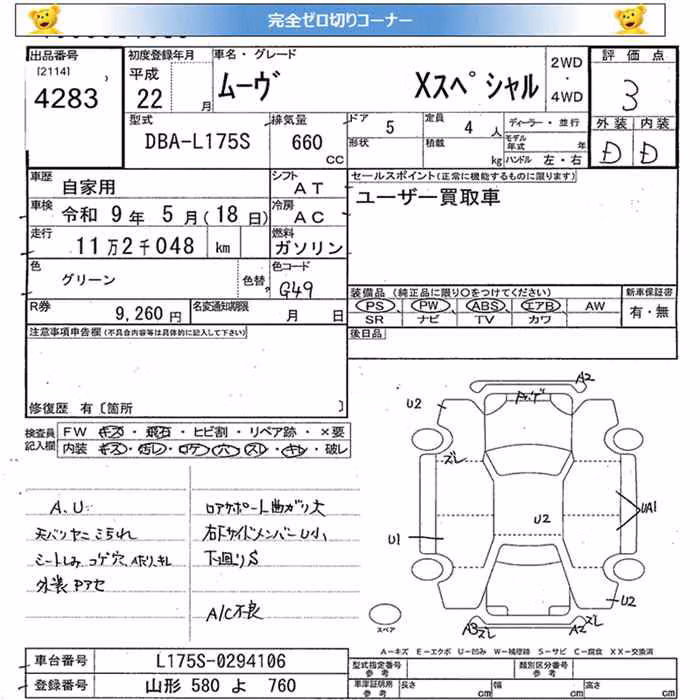 完全ゼロ切りコーナー
出品番号
[2114]
4283
初度登録年月
平成
22 月
車名・グレード
ムーヴ Xスペシャル
2WD
・
4WD
評価点
3
外装 内装
D D
型式
DBA-L175S
排気量
660
CC
ドア 5
定員 4 人
形状
積載 kg
ディーラー・並行
モデル年式 年
ハンドル 左・右
車歴 自家用
シフト AT
車検 令和 9年 5月(18日)
冷房 AC
走行 11万2千048 km
燃料 ガソリン
色 グリーン
色替
色コード G49
R券 9,260円
名変通知期限 月 日
セールスポイント(正常に機能するものに限ります)
ユーザー買取車
装備品 (純正品に限り○をつけてください)
PS PW ABS エアB AW
SR ナビ TV カワ
新車保証書
有・無
後日品
注意事項申告欄(不具合内容等は具体的に記入して下さい)
修復歴 有〔箇所 〕
検査員記入欄
FW キズ・飛石・ヒビ割・リペア跡・×要
内装 キズ・汚レ・コゲ・穴・スレ・キレ・破レ
A.U
天バリヤニコゲ汚れ
シートしみ コゲ穴
外装Pアセ
コアサポート曲ガリ大
右Fサイドメンバー U小
下廻りS
A/C不良
A2
U2
ズレ
U1
U2
UA1
U2
A3ズレ
A2
ズレ
スペア
A-キズ E-エクボ U-凹み W-補修跡 S-サビ C-腐食 XX-交換済
車台番号 L175S-0294106
登録番号 山形 580 よ 760
型式指定番号
参考
類別区分番号
参考
車庫証明用
参考
長さ cm
幅 cm
高さ cm